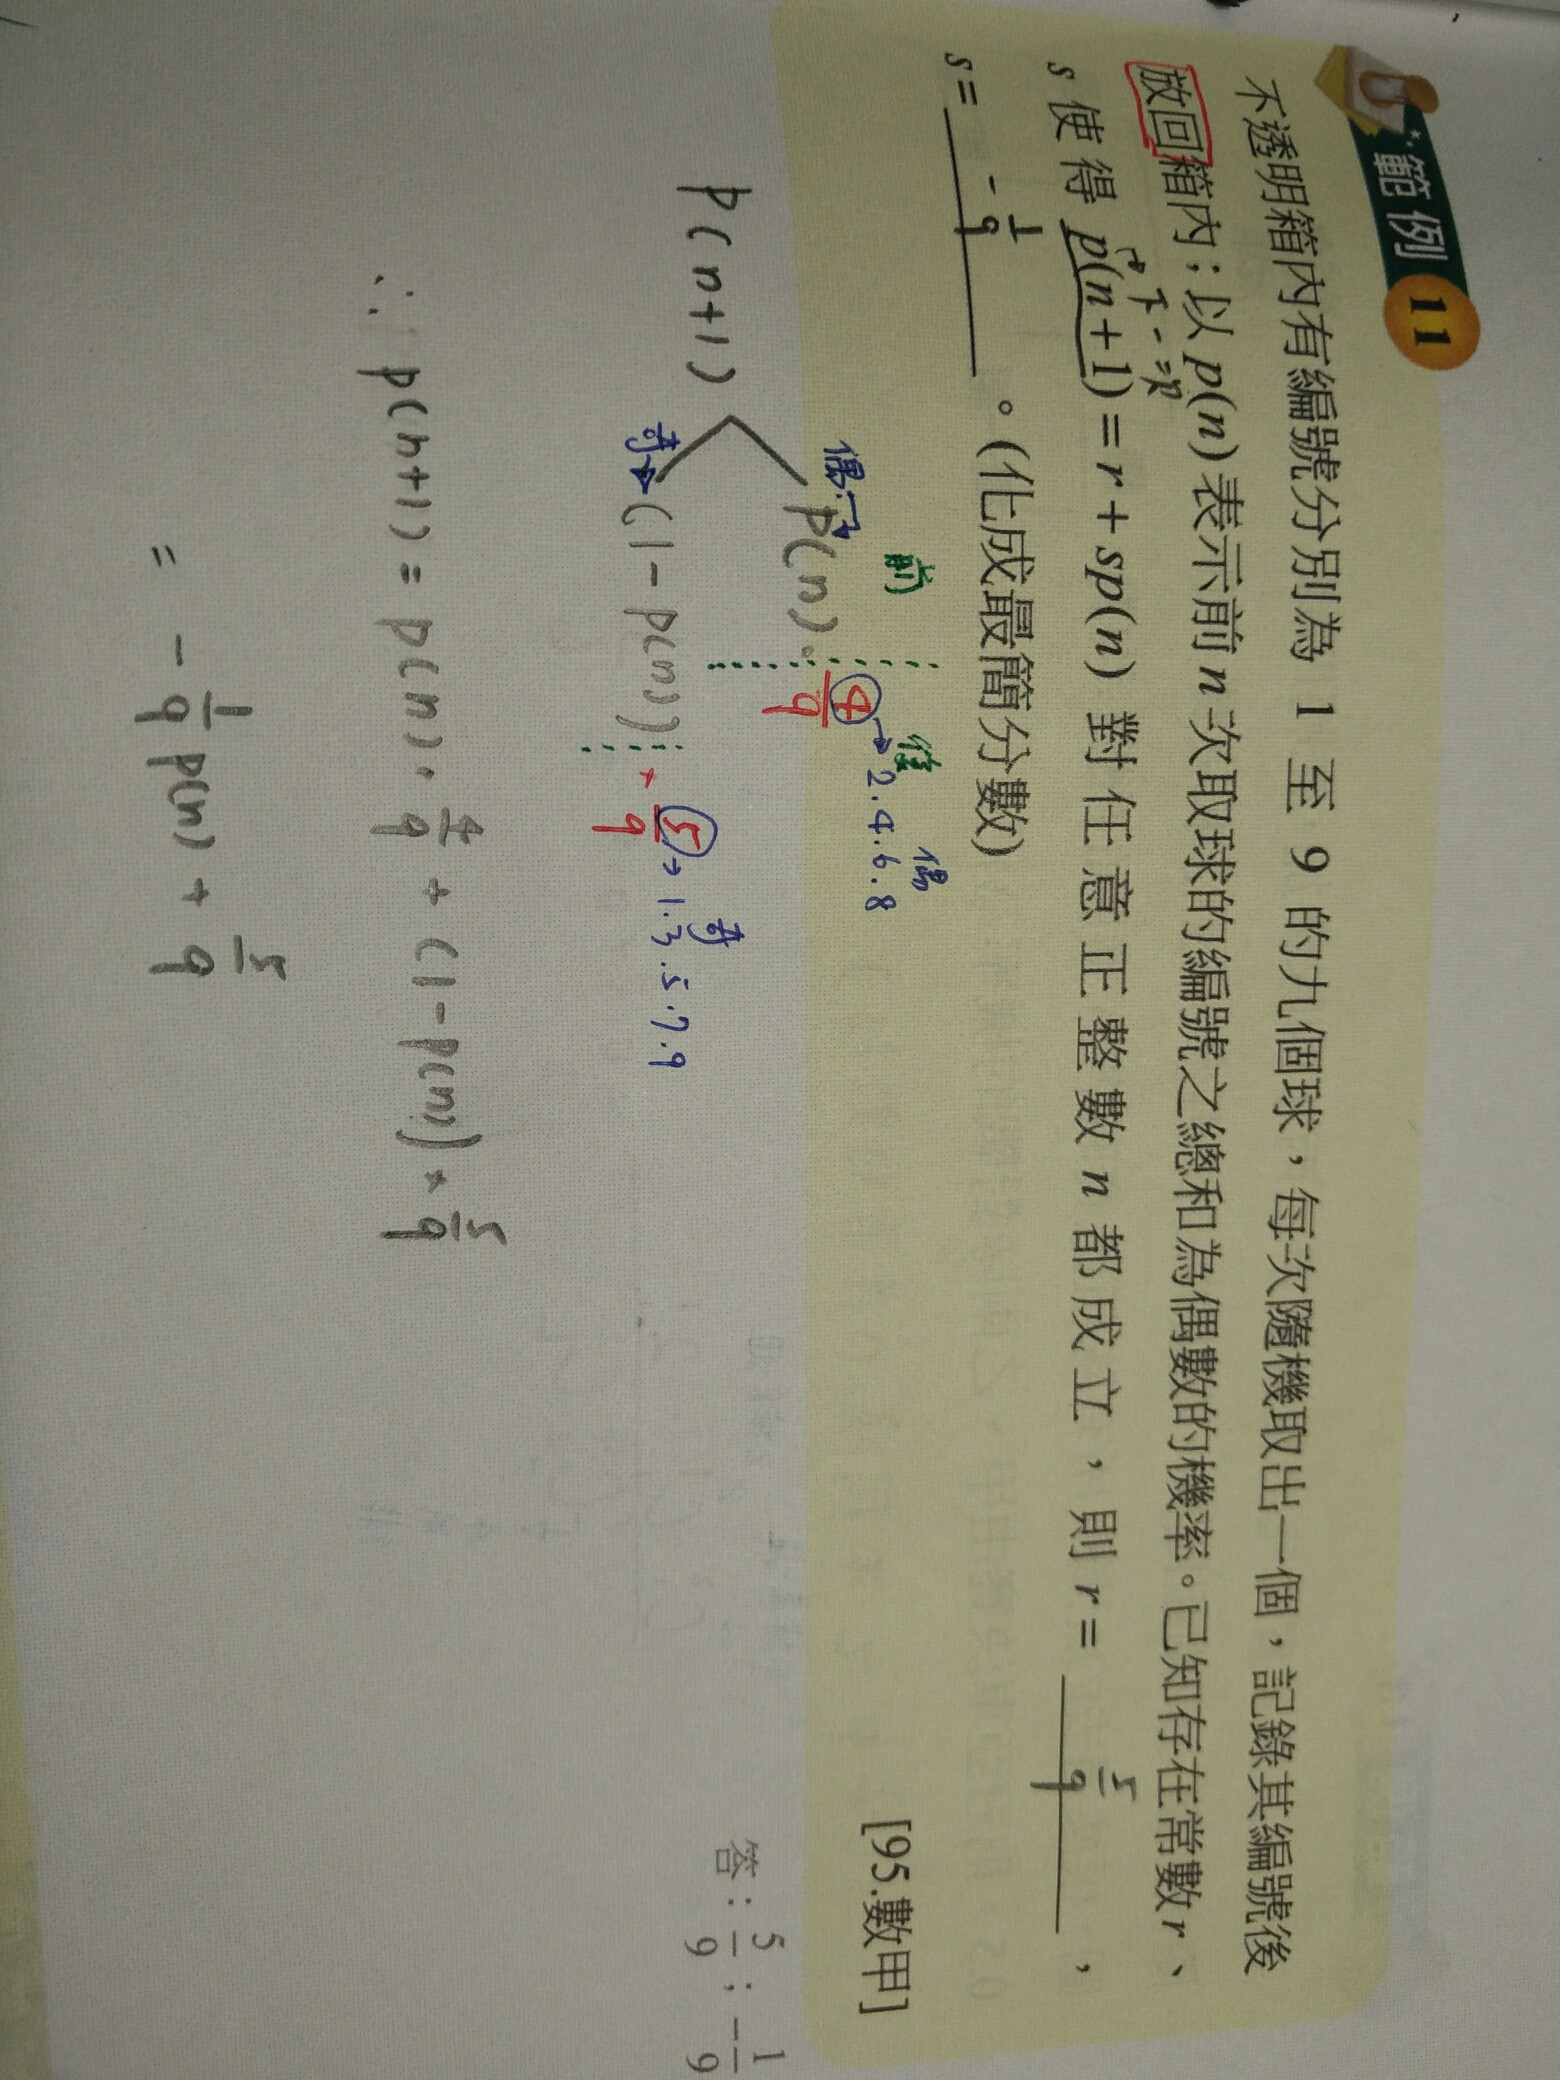 範例 11
不透明箱內有編號分別為 1 至 9 的九個球，每次隨機取出一個，記錄其編號後
放回箱內；以 p(n) 表示前 n 次取球的編號之總和為偶數的機率。已知存在常數 r、
下一次
s 使得 p(n+1) = r + sp(n) 對任意正整數 n 都成立，則 r = 5/9，
s = -1/9。(化成最簡分數)
[95.數甲]
答：5/9；-1/9
前 後 偶
偶 → p(n) · 4/9 → 2.4.6.8
p(n+1)
奇
奇 → (1-p(n)) × 5/9 → 1.3.5.7.9
∴ p(n+1) = p(n) · 4/9 + (1-p(n)) × 5/9
= -1/9 p(n) + 5/9